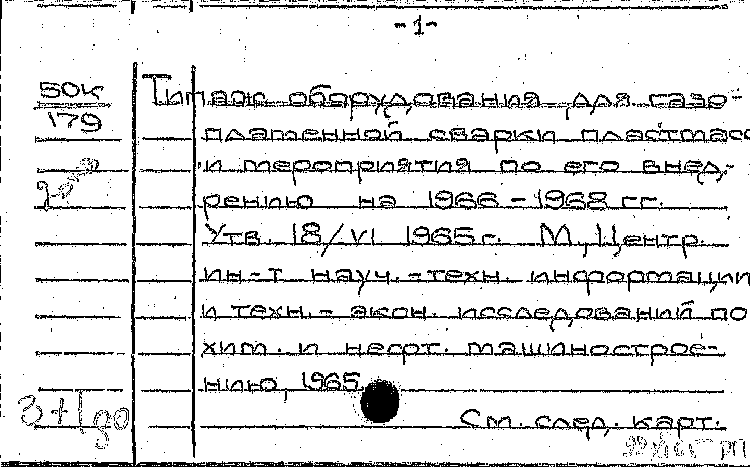 -1-
50К
179
Типаж оборудования для газо-
пламенной сварки пластмасс
и мероприятия по его внед-
рению на 1966 - 1968 гг.
Утв. 18/VI 1965г. М., Центр.
ин-т науч.-техн. информации
и техн.- экон. исследований по
хим. и нефт. машинострое-
нию, 1965.
См. след. карт.